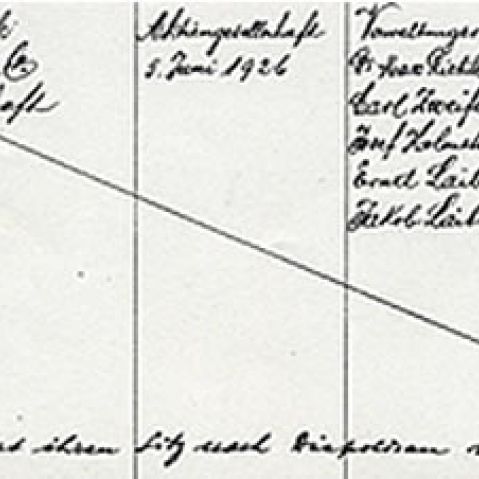 Co
Aktiengesellschaft
5. Juni 1926
Verwaltungsr
Dr. Max Richt
Carl Zweif
Josef Holenst
Ernst Laib
Jakob Laib
ihren Sitz nach Diepoldsau